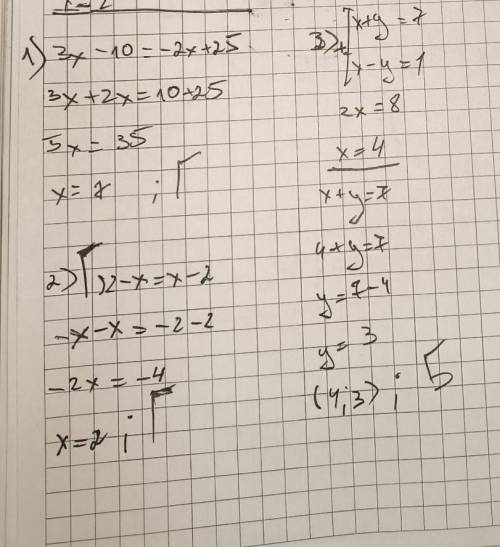 1) 3x - 10 = -2x + 25
3x + 2x = 10 + 25
5x = 35
x = 7 ; Г
2) Г) 2 - x = x - 2
-x - x = -2 - 2
-2x = -4
x = 2 ; Г
3) + [x + y = 7
[x - y = 1
2x = 8
x = 4
x + y = 7
4 + y = 7
y = 7 - 4
y = 3
(4; 3) ; Б